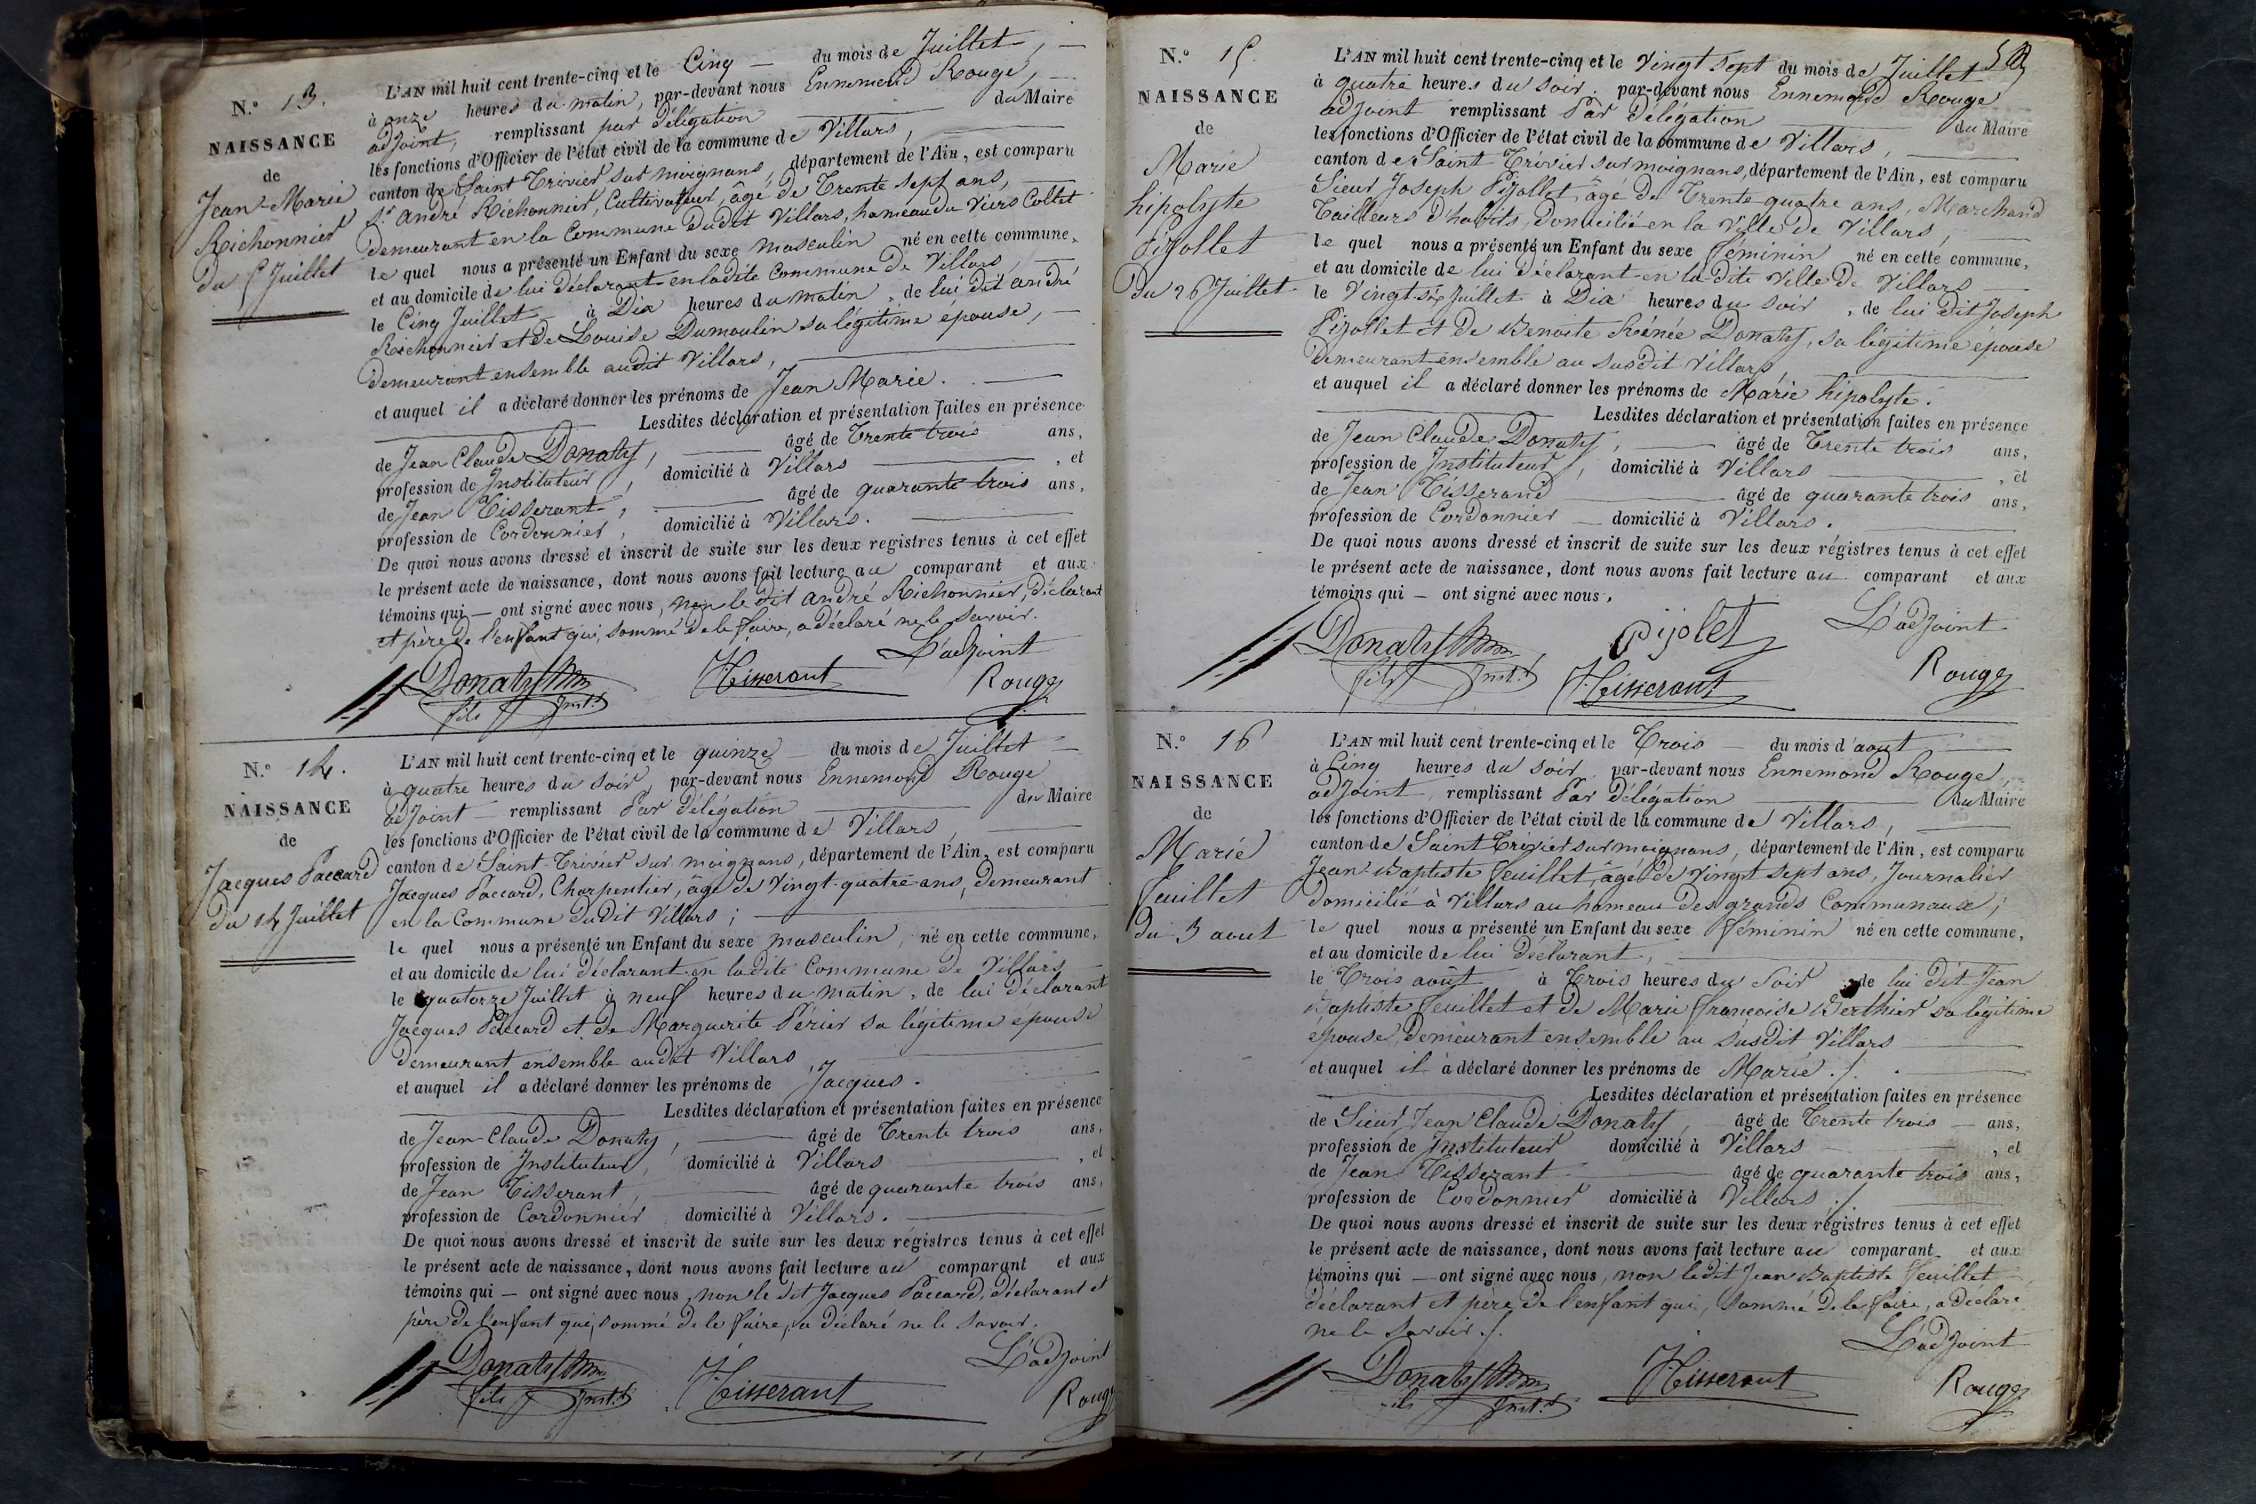 N.° 13.
NAISSANCE
de
Jean-Marie
Richonnier
du 5 Juillet
L'AN mil huit cent trente-cinq et le Cinq — du mois de Juillet, —
à onze heures du matin, par-devant nous Ennemond Rouge, —
adjoint, remplissant par délégation — du Maire
les fonctions d'Officier de l'état civil de la commune de Villars, —
canton de Saint Trivier sur moignans, département de l'Ain, est comparu
Sr. andré Richonnier, Cultivateur, âgé de Trente sept ans, —
demeurant en la Commune dudit Villars, hameau du Viers Collet
le quel nous a présenté un Enfant du sexe masculin né en cette commune,
et au domicile de lui déclarant en ladite Commune de Villars, —
le Cinq Juillet à Dix heures du matin, de lui dit andré
Richonnier et de Louise Dumoulin sa légitime épouse, —
demeurant ensemble audit Villars, —
et auquel il a déclaré donner les prénoms de Jean Marie. —
Lesdites déclaration et présentation faites en présence
de Jean Claude Donaty, — âgé de Trente trois ans,
profession de Instituteur, domicilié à Villars — , et
de Jean Tisserant, — âgé de quarante trois ans,
profession de Cordonnier, domicilié à Villars. —
De quoi nous avons dressé et inscrit de suite sur les deux registres tenus à cet effet
le présent acte de naissance, dont nous avons fait lecture au comparant et aux
témoins qui — ont signé avec nous, non le dit andré Richonnier, déclarant
et père de l'enfant qui, sommé de le faire, a déclaré ne le savoir.
L'adjoint
Donaty
fils inst.r
Tisserant
Rouge
N.° 14.
NAISSANCE
de
Jacques Paccard
du 14 Juillet
L'AN mil huit cent trente-cinq et le quinze — du mois de Juillet —
à quatre heures du soir, par-devant nous Ennemond Rouge
adjoint — remplissant Par délégation — du Maire
les fonctions d'Officier de l'état civil de la commune de Villars, —
canton de Saint-Trivier sur moignans, département de l'Ain, est comparu
Jacques Paccard, Charpentier, âgé de Vingt-quatre ans, demeurant
en la Commune dudit Villars; —
le quel nous a présenté un Enfant du sexe masculin, né en cette commune,
et au domicile de lui déclarant en ladite Commune de Villars —
le quatorze Juillet à neuf heures du matin, de lui déclarant
Jacques Paccard et de Marguerite Périer sa légitime épouse
demeurant ensemble audit Villars —
et auquel il a déclaré donner les prénoms de Jacques. —
Lesdites déclaration et présentation faites en présence
de Jean-Claude Donaty, — âgé de Trente trois ans,
profession de Instituteur, domicilié à Villars — , et
de Jean Tisserant, — âgé de quarante trois ans,
profession de Cordonnier domicilié à Villars. —
De quoi nous avons dressé et inscrit de suite sur les deux régistres tenus à cet effet
le présent acte de naissance, dont nous avons fait lecture au comparant et aux
témoins qui — ont signé avec nous, non le dit Jacques Paccard, déclarant et
père de l'enfant qui, sommé de le faire, a déclaré ne le savoir.
L'adjoint
Donaty
fils inst.r
Tisserant
Rouge
N.° 15.
NAISSANCE
de
Marie
hipolyte
Pijollet
du 26 Juillet
L'AN mil huit cent trente-cinq et le Vingt sept du mois de Juillet
à quatre heures du soir, par-devant nous Ennemond Rouge
adjoint remplissant Par délégation — du Maire
les fonctions d'Officier de l'état civil de la commune de Villars, —
canton de Saint-Trivier sur moignans, département de l'Ain, est comparu
Sieur Joseph Pijollet âgé de Trente-quatre ans, Marchand
Tailleurs d'habits, domicilié en la Ville de Villars, —
le quel nous a présenté un Enfant du sexe féminin né en cette commune,
et au domicile de lui déclarant en la dite Ville de Villars —
le Vingt-six Juillet à Dix heures du soir, de lui dit Joseph
Pijollet et de Benoite Rénée Donaty, sa légitime épouse
demeurant ensemble au susdit Villars, —
et auquel il a déclaré donner les prénoms de Marie hipolyte.
Lesdites déclaration et présentation faites en présence
de Jean Claude Donaty, — âgé de Trente trois ans,
profession de Instituteur, domicilié à Villars — , et
de Jean Tisserand — âgé de quarante trois ans,
profession de Cordonnier — domicilié à Villars. —
De quoi nous avons dressé et inscrit de suite sur les deux régistres tenus à cet effet
le présent acte de naissance, dont nous avons fait lecture au comparant et aux
témoins qui — ont signé avec nous,
L'adjoint
Donaty
fils inst.r
Pijolet
Tisserant
Rouge
N.° 16
NAISSANCE
de
Marie
feuillet
du 3 aout
L'AN mil huit cent trente-cinq et le Trois — du mois d'aout —
à Cinq heures du soir par-devant nous Ennemond Rouge,
adjoint, remplissant Par délégation — du Maire
les fonctions d'Officier de l'état civil de la commune de Villars, —
canton de Saint Trivier sur moignans, département de l'Ain, est comparu
Jean-Baptiste feuillet, âgé de vingt sept ans, Journalier
domicilié à Villars au hameau des grands Communaux;
le quel nous a présenté un Enfant du sexe féminin né en cette commune,
et au domicile de lui déclarant, —
le Trois août à Trois heures du soir de lui dit Jean
Baptiste feuillet et de Marie françoise Berthier sa légitime
epouse, demeurant ensemble au susdit Villars —
et auquel il à déclaré donner les prénoms de Marie ./. —
Lesdites déclaration et présentation faites en présence
de Sieur Jean Claude Donaty, — âgé de Trente trois — ans,
profession de Instituteur domicilié à Villars — , et
de Jean Tisserant — âgé de quarante trois ans,
profession de Cordonnier domicilié à Villars ./. —
De quoi nous avons dressé et inscrit de suite sur les deux régistres tenus à cet effet
le présent acte de naissance, dont nous avons fait lecture au comparant et aux
témoins qui — ont signé avec nous, non ledit Jean Baptiste feuillet
déclarant et père de l'enfant qui, sommé de le faire, a déclaré
ne le savoir ./.
L'adjoint
Donaty
fils inst.r
Tisserant
Rouge